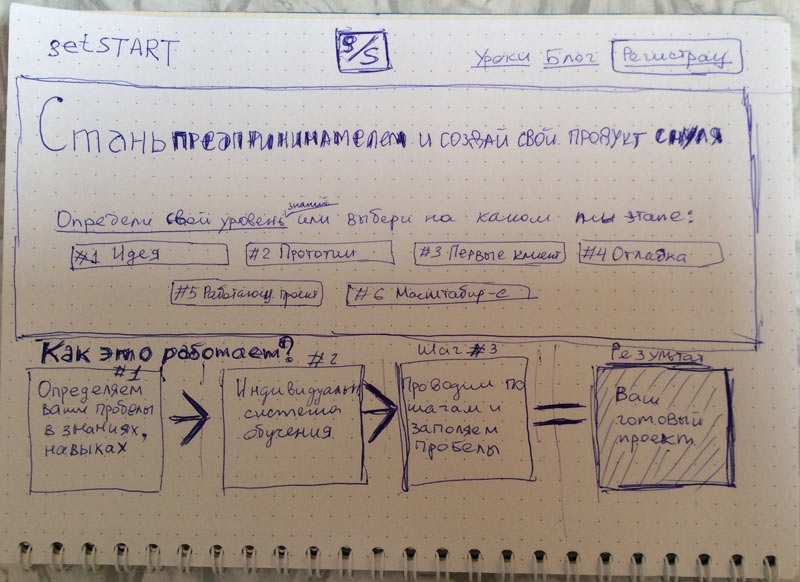 getSTART
g/s
Уроки Блог Регистрац
Стань предпринимателем и создай свой продукт с нуля
знаний
Определи свой уровень или выбери на каком ты этапе:
#1 Идея #2 Прототип #3 Первые клиент #4 Отладка
#5 Работающ. проект #6 Масштабир-е
Как это работает?
#1
Определяем
ваши пробелы
в знаниях,
навыках
#2
Индивидуальн
система
обучения
Шаг #3
Проводим по
шагам и
заполяем
пробелы
=
Результат
Ваш
готовый
проект